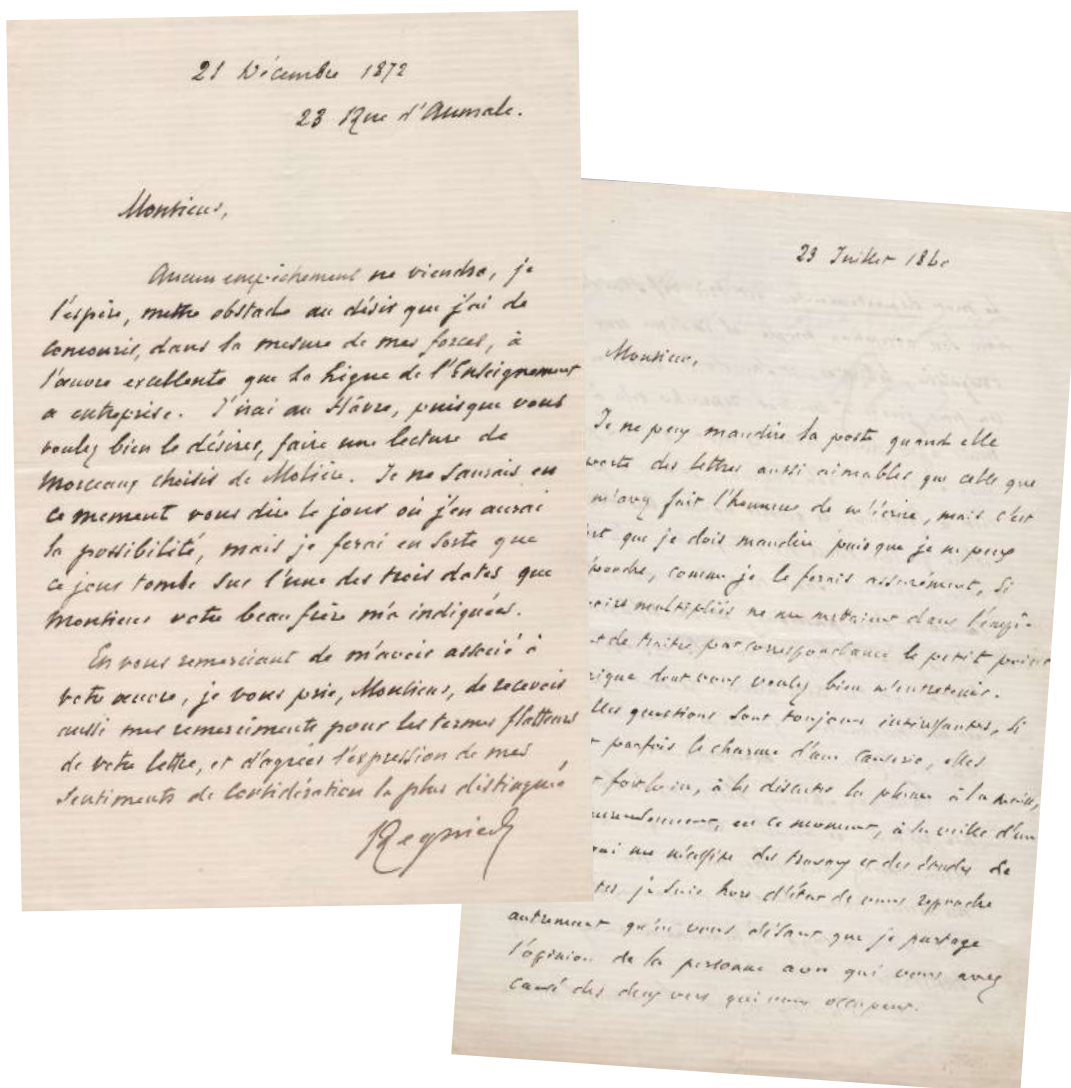 21 Décembre 1872
23 Rue d'Aumale.
Monsieur,
Aucun empêchement ne viendra, je
l'espère, mettre obstacle au désir que j'ai de
concourir, dans la mesure de mes forces, à
l'œuvre excellente que la Ligue de l'Enseignement
a entreprise. J'irai au Hâvre, puisque vous
voulez bien le désirer, faire une lecture de
morceaux choisis de Molière. Je ne saurais en
ce moment vous dire le jour où j'en aurai
la possibilité, mais je ferai en sorte que
ce jour tombe sur l'une des trois dates que
Monsieur votre beau frère m'a indiquées.
En vous remerciant de m'avoir associé à
votre œuvre, je vous prie, Monsieur, de recevoir
aussi mes remerciments pour les termes flatteurs
de votre lettre, et d'agréer l'expression de mes
sentiments de considération la plus distinguée
Regnier
23 Juillet 186
Monsieur,
Je ne peux maudire la poste quand elle
des lettres aussi aimables que celle que
m'avez fait l'honneur de m'écrire, mais c'est
que je dois maudire puisque je ne peux
, comme je le ferais assurément, si
multipliés ne me mettaient dans l'empê-
de traiter par correspondance le petit
dont vous voulez bien m'entretenir.
questions sont toujours intéressantes, si
parfois le charme d'une causerie, elles
à les discuter la plume à la main,
en ce moment, à la veille d'un
me nécessite des travaux et des études de
je suis hors d'état de vous répondre
autrement qu'en vous disant que je partage
l'opinion de la personne avec qui vous avez
causé des deux vers qui vous occupent.